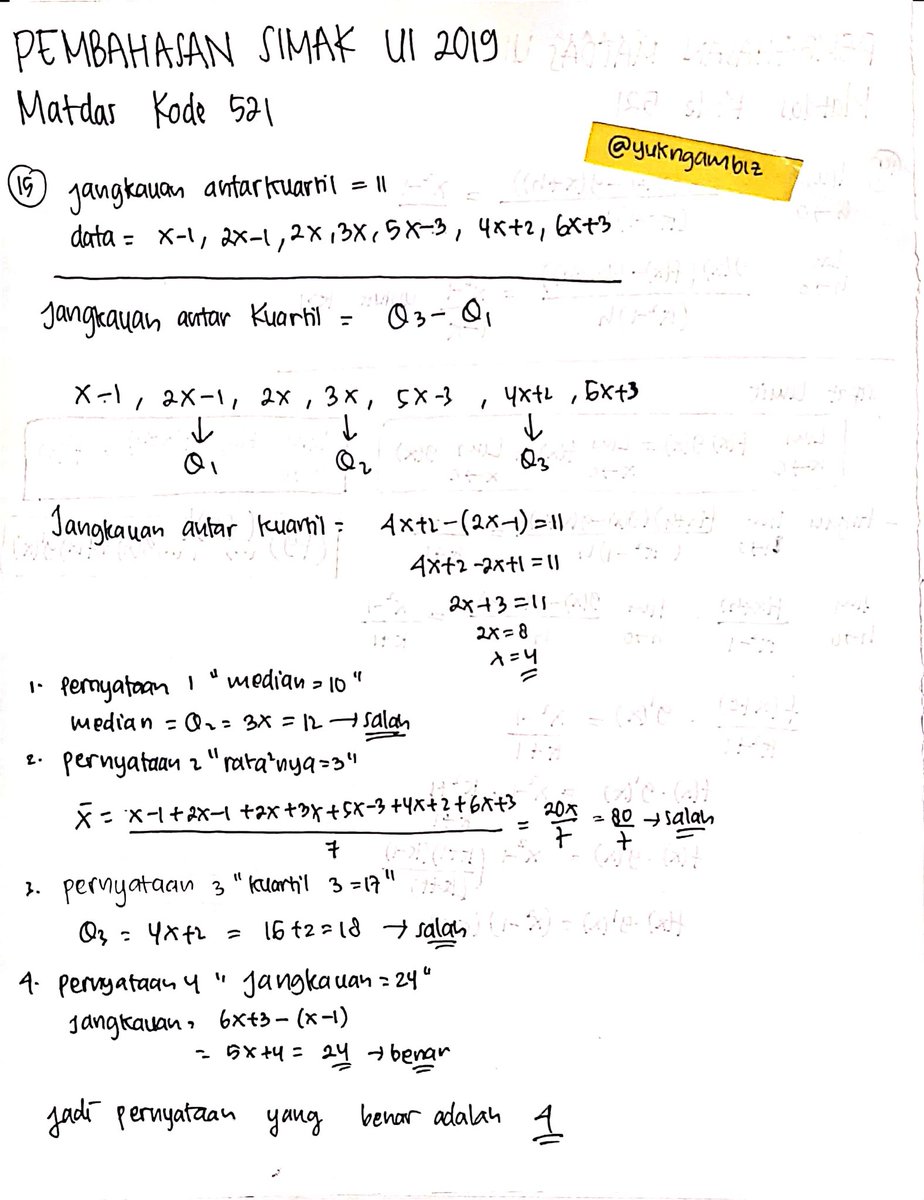 PEMBAHASAN SIMAK UI 2019
Matdas Kode 521
@yukngambiz
15 jangkauan antarkuartil = 11
data = x-1, 2x-1, 2x, 3x, 5x-3, 4x+2, 6x+3
Jangkauan antar Kuartil = Q3 - Q1
x-1, 2x-1, 2x, 3x, 5x-3, 4x+2, 6x+3
↓ ↓ ↓
Q1 Q2 Q3
Jangkauan antar kuartil = 4x+2-(2x-1)=11
4x+2-2x+1=11
2x+3=11
2x=8
x=4
1. pernyataan 1 "median=10"
median = Q2 = 3x = 12 → salah
2. pernyataan 2 "rata²nya=3"
x̄ = x-1+2x-1+2x+3x+5x-3+4x+2+6x+3 / 7 = 20x/7 = 80/7 → salah
3. pernyataan 3 "kuartil 3=17"
Q3 = 4x+2 = 16+2=18 → salah
4. pernyataan 4 "Jangkauan=24"
Jangkauan = 6x+3-(x-1)
= 5x+4 = 24 → benar
jadi pernyataan yang benar adalah 4